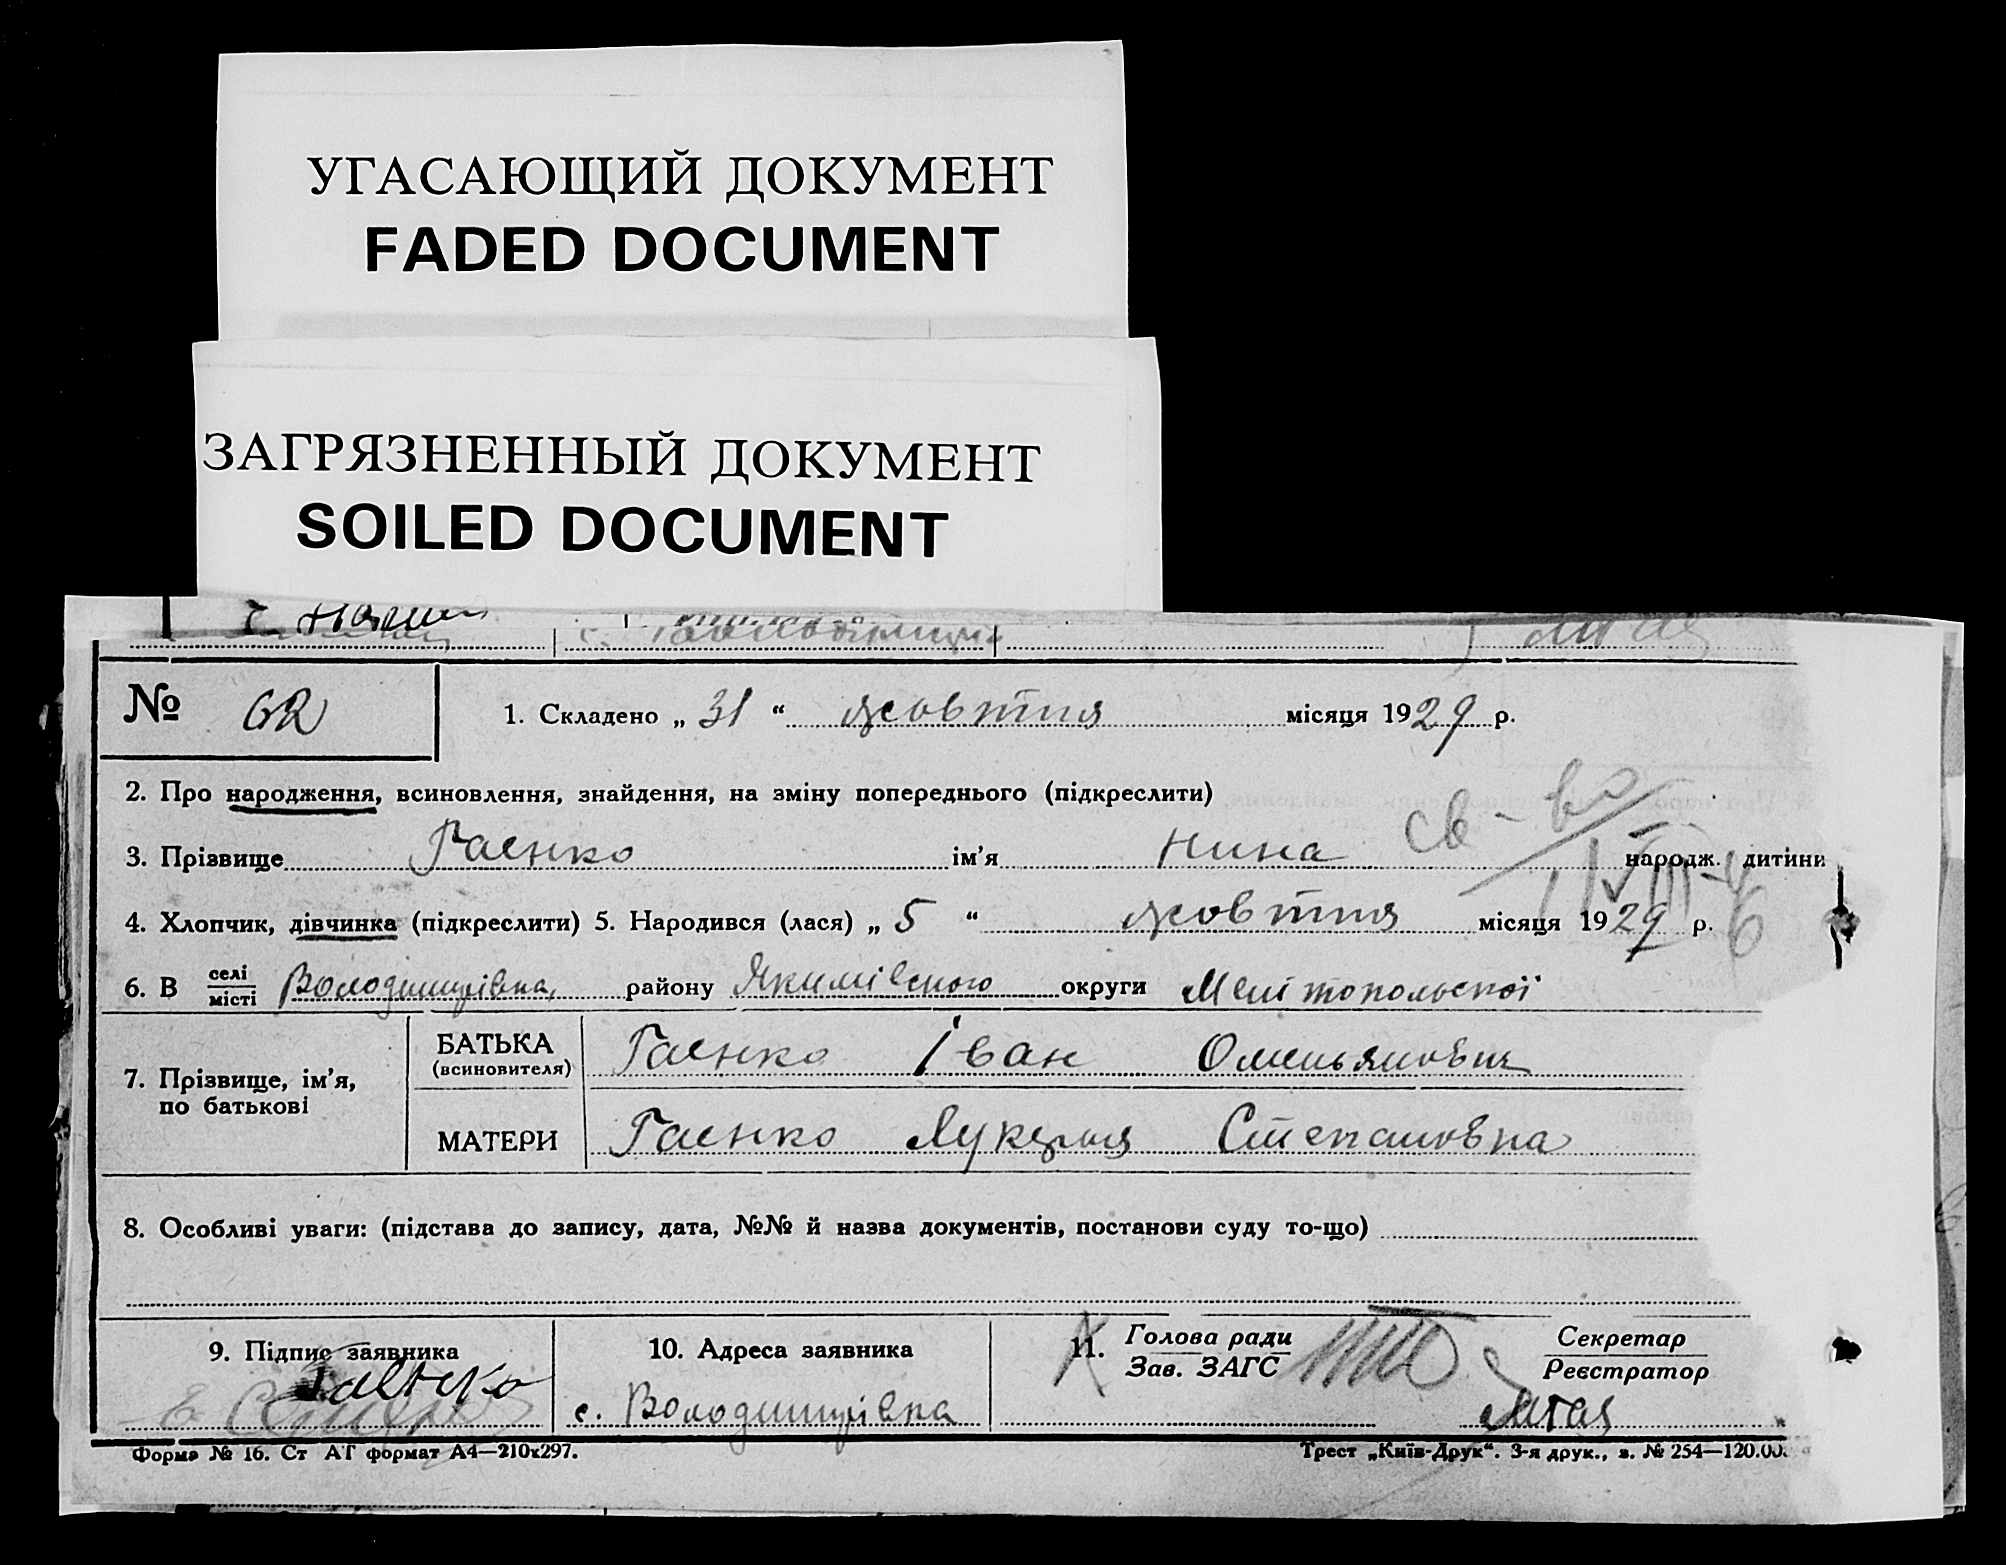 УГАСАЮЩИЙ ДОКУМЕНТ
FADED DOCUMENT
ЗАГРЯЗНЕННЫЙ ДОКУМЕНТ
SOILED DOCUMENT
№ 62 1. Складено „ 31 “ жовтня місяця 1929 р.
2. Про народження, всиновлення, знайдення, на зміну попереднього (підкреслити)
св-во
3. Прізвище Гаенко ім’я Нина народж. дитини
4. Хлопчик, дівчинка (підкреслити) 5. Народився (лася) „ 5 “ жовтня місяця 1929 р.
6. В селі місті Володимирівка, району Якимівського округи Мелітопольскої
7. Прізвище, ім’я, по батькові
БАТЬКА (всиновителя) Гаенко Іван Омельянович
МАТЕРИ Гаенко Лукерья Степановна
8. Особливі уваги: (підстава до запису, дата, №№ й назва документів, постанови суду то-що)
9. Підпис заявника 10. Адреса заявника 11. Голова ради Секретар
Зав. ЗАГС Реєстратор
Гаенко с. Володимирівка
Форма № 16. Ст АТ формат А4—210х297. Трест „Київ-Друк“. 3-я друк., з. № 254—120.00